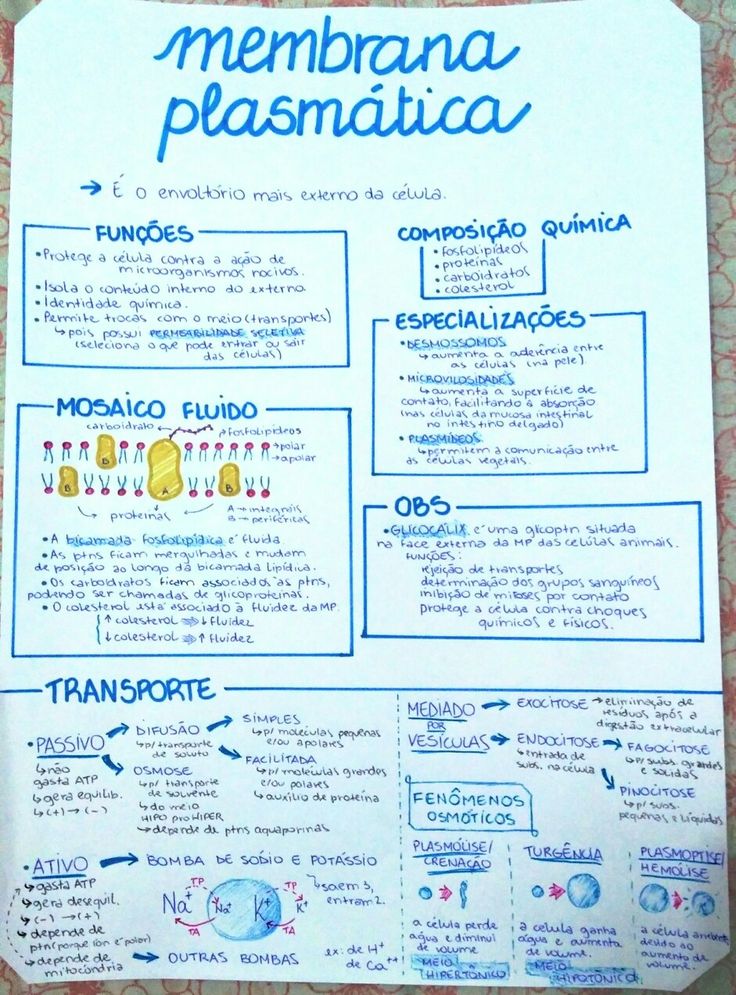 membrana
plasmática
→ É o envoltório mais externo da célula.
FUNÇÕES
• Protege a célula contra a ação de
microorganismos nocivos.
• Isola o conteúdo interno do externo
• Identidade química.
• Permite trocas com o meio (transportes)
↳ pois possui PERMEABILIDADE SELETIVA
(seleciona o que pode entrar ou sair
das células)
COMPOSIÇÃO QUÍMICA
• fosfolipídeos
• proteínas
• carboidratos
• colesterol
ESPECIALIZAÇÕES
• DESMOSSOMOS
↳ aumenta a aderência entre
as células (na pele).
• MICROVILOSIDADES
↳ aumenta a superfície de
contato, facilitando à absorção
(nas células da mucosa intestinal
no intestino delgado)
• PLASMÍDEOS
↳ permitem a comunicação entre
as células vegetais.
MOSAICO FLUIDO
carboidrato
fosfolipídeos
→ polar
→ apolar
B
B
A
B
proteínas
A → integrais
B → periféricas
• A bicamada fosfolipídica é fluida.
• As ptns ficam mergulhadas e mudam
de posição ao longo da bicamada lipídica.
• Os carboidratos ficam associados às ptns,
podendo ser chamadas de glicoproteínas.
• O colesterol está associado à fluidez da MP.
↑ colesterol ⇒ ↓ fluidez
↓ colesterol ⇒ ↑ fluidez
OBS
• GLICOCÁLIX é uma glicoptn situada
na face externa da MP das células animais.
FUNÇÕES:
rejeição de transportes
determinação dos grupos sanguíneos
inibição de mitoses por contato
protege a célula contra choques
químicos e físicos.
TRANSPORTE
• PASSIVO
↳ não
gasta ATP
↳ gera equilíb.
↳ (+) → (-)
DIFUSÃO
↳ p/ transporte
de soluto
SIMPLES
↳ p/ moléculas pequenas
e/ou apolares
FACILITADA
↳ p/ moléculas grandes
e/ou polares
↳ auxílio de proteína
OSMOSE
↳ p/ transporte
de solvente
↳ do meio
HIPO pro HIPER
↳ depende de ptns aquaporinas
• ATIVO
gasta ATP
gera desequil.
(-) → (+)
depende de
ptn (porque íon é polar)
depende de
mitocôndria
BOMBA DE SÓDIO E POTÁSSIO
↳ saem 3,
entram 2.
TP
Na⁺
Na⁺
TA
TP
K⁺
K⁺
TA
OUTRAS BOMBAS
ex: de H⁺
de Ca⁺⁺
MEDIADO
POR
VESÍCULAS
EXOCITOSE → eliminação de
resíduos após a
digestão extracelular
ENDOCITOSE
↳ entrada de
subs. na célula
FAGOCITOSE
↳ p/ subs. grandes
e sólidas
PINOCITOSE
↳ p/ subs.
pequenas e líquidas
FENÔMENOS
OSMÓTICOS
PLASMÓLISE/
CRENAÇÃO
a célula perde
água e diminui
de volume
MEIO
HIPERTÔNICO
TURGÊNCIA
a célula ganha
água e aumenta
de volume.
MEIO
HIPOTÔNICO
PLASMOPTISE/
HEMÓLISE
a célula
devido ao
aumento de
volume.